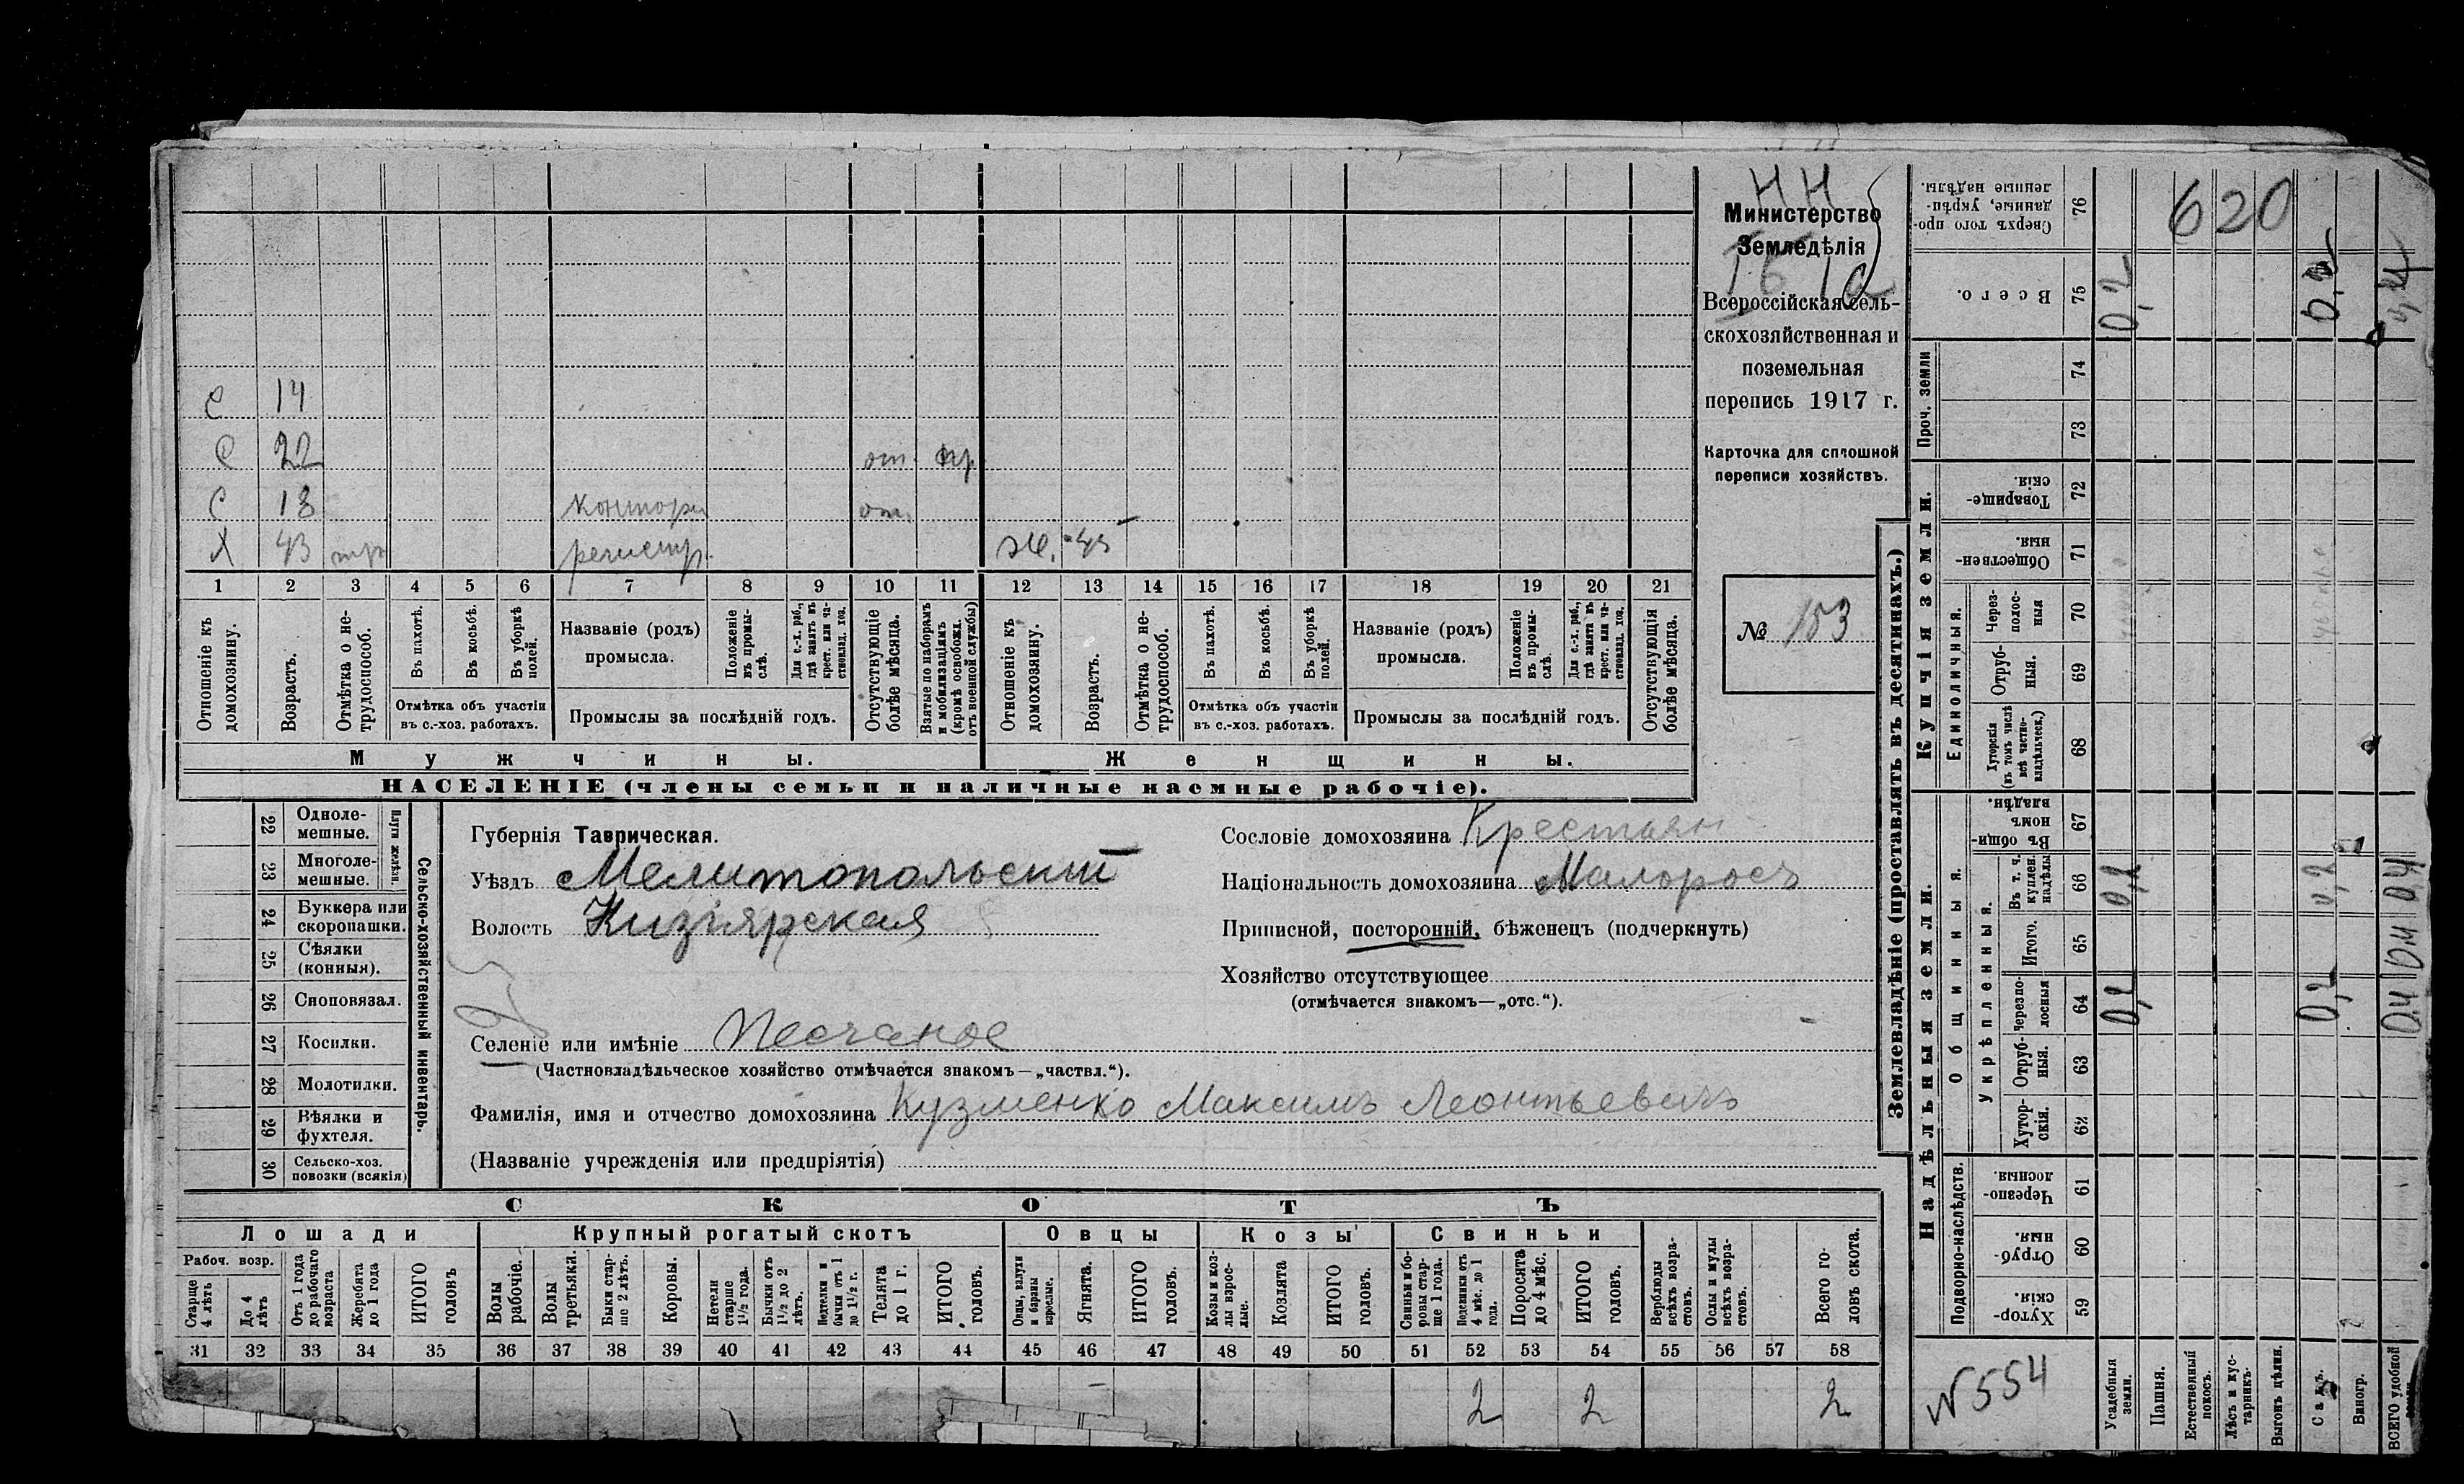 НН
Министерство
Земледѣлія
Всероссійская сель-
скохозяйственная и
поземельная
перепись 1917 г.
Карточка для сплошной
переписи хозяйствъ.
№ 153
С 14
С 22 от. пр.
С 18 контора от.
Х 43 регистр. ж. 45
1 2 3 4 5 6 7 8 9 10 11 12 13 14 15 16 17 18 19 20 21
Отношеніе къ домохозяину.
Возрастъ.
Отмѣтка о не-трудоспособ.
Въ пахотѣ.
Въ косьбѣ.
Въ уборкѣ полей.
Отмѣтка объ участіи въ с.-хоз. работахъ.
Названіе (родъ) промысла.
Положеніе въ промы-слѣ.
Для с.-х. раб., гдѣ занятъ въ крест. или ча-стновлад. хоз.
Промыслы за послѣдній годъ.
Отсутствующіе болѣе мѣсяца.
Взятые по наборамъ и мобилизаціямъ (кромѣ освобожд. отъ военной службы)
Отношеніе къ домохозяину.
Возрастъ.
Отмѣтка о не-трудоспособ.
Въ пахотѣ.
Въ косьбѣ.
Въ уборкѣ полей.
Отмѣтка объ участіи въ с.-хоз. работахъ.
Названіе (родъ) промысла.
Положеніе въ промы-слѣ.
Для с.-х. раб., гдѣ занята въ крест. или ча-стновлад. хоз.
Промыслы за послѣдній годъ.
Отсутствующія болѣе мѣсяца.
Мужчины. Женщины.
НАСЕЛЕНІЕ (члены семьи и наличные наемные рабочіе).
Сельско-хозяйственный инвентарь.
Плуги желѣзн.
22 Одноле-мешные.
23 Многоле-мешные.
24 Буккера или скоропашки.
25 Сѣялки (конныя).
26 Сноповязал.
27 Косилки.
28 Молотилки.
29 Вѣялки и фухтеля.
30 Сельско-хоз. повозки (всякія)
Губернія Таврическая.
Уѣздъ Мелитопольскій
Волость Кизіярская
Селеніе или имѣніе Песчаное
(Частновладѣльческое хозяйство отмѣчается знакомъ—„частвл.“).
Фамилія, имя и отчество домохозяина Кузменко Максимъ Леонтьевичъ
(Названіе учрежденія или предпріятія)
Сословіе домохозяина Крестьян
Національность домохозяина Малоросъ
Приписной, посторонній, бѣженецъ (подчеркнуть)
Хозяйство отсутствующее
(отмѣчается знакомъ—„отс.“).
СКОТЪ
Лошади Крупный рогатый скотъ Овцы Козы Свиньи
Рабоч. возр.
Старше 4 лѣтъ
До 4 лѣтъ
Отъ 1 года до рабочаго возраста
Жеребята до 1 года
ИТОГО головъ
Волы рабочіе.
Волы третьяки.
Быки стар-ше 2 лѣтъ.
Коровы.
Нетели старше 1½ года.
Бычки отъ 1½ до 2 лѣтъ.
Подтелки и бычки отъ 1 до 1½ г.
Телята до 1 г.
ИТОГО головъ.
Овцы, валухи и бараны взрослые.
Ягнята.
ИТОГО головъ.
Козы и коз-лы взрос-лые.
Козлята
ИТОГО головъ.
Свиньи и бо-ровы стар-ше 1 года.
Подсвинки отъ 4 мѣс. до 1 года.
Поросята до 4 мѣс.
ИТОГО головъ.
Верблюды всѣхъ возра-стовъ.
Ослы и мулы всѣхъ возра-стовъ.
Всего го-ловъ скота.
31 32 33 34 35 36 37 38 39 40 41 42 43 44 45 46 47 48 49 50 51 52 53 54 55 56 57 58
2 2 2
Землевладѣніе (проставлять въ десятинахъ.)
Надѣльныя земли. Купчія земли. Проч. земли
Подворно-наслѣдств.
Общинныя.
Укрѣпленныя.
Единоличныя.
Хутор-скія. 59
Отруб-ныя. 60
Черезпо-лосныя. 61
Хутор-скія. 62
Отруб-ныя. 63
Черезпо-лосныя 64
Итого. 65
Въ т. ч. куплен. надѣлы 66
Въ общин-номъ владѣн. 67
Хуторскія (въ томъ числѣ всѣ частно-владѣльческ.) 68
Отруб-ныя. 69
Через-полос-ныя 70
Обществен-ныя. 71
Товарище-скія. 72
73
74
Всего. 75
Сверхъ того про-данные, укрѣп-ленные надѣлы. 76
620
N 554
Усадебныя земли. 0,2 0,2 0,2
Пашня.
Естественный покосъ.
Лѣсъ и кус-тарникъ.
Выгонъ цѣлин.
Садъ. 0,2 0,2 0,2
Виногр.
ВСЕГО удобной 0,4 0,4 0,4